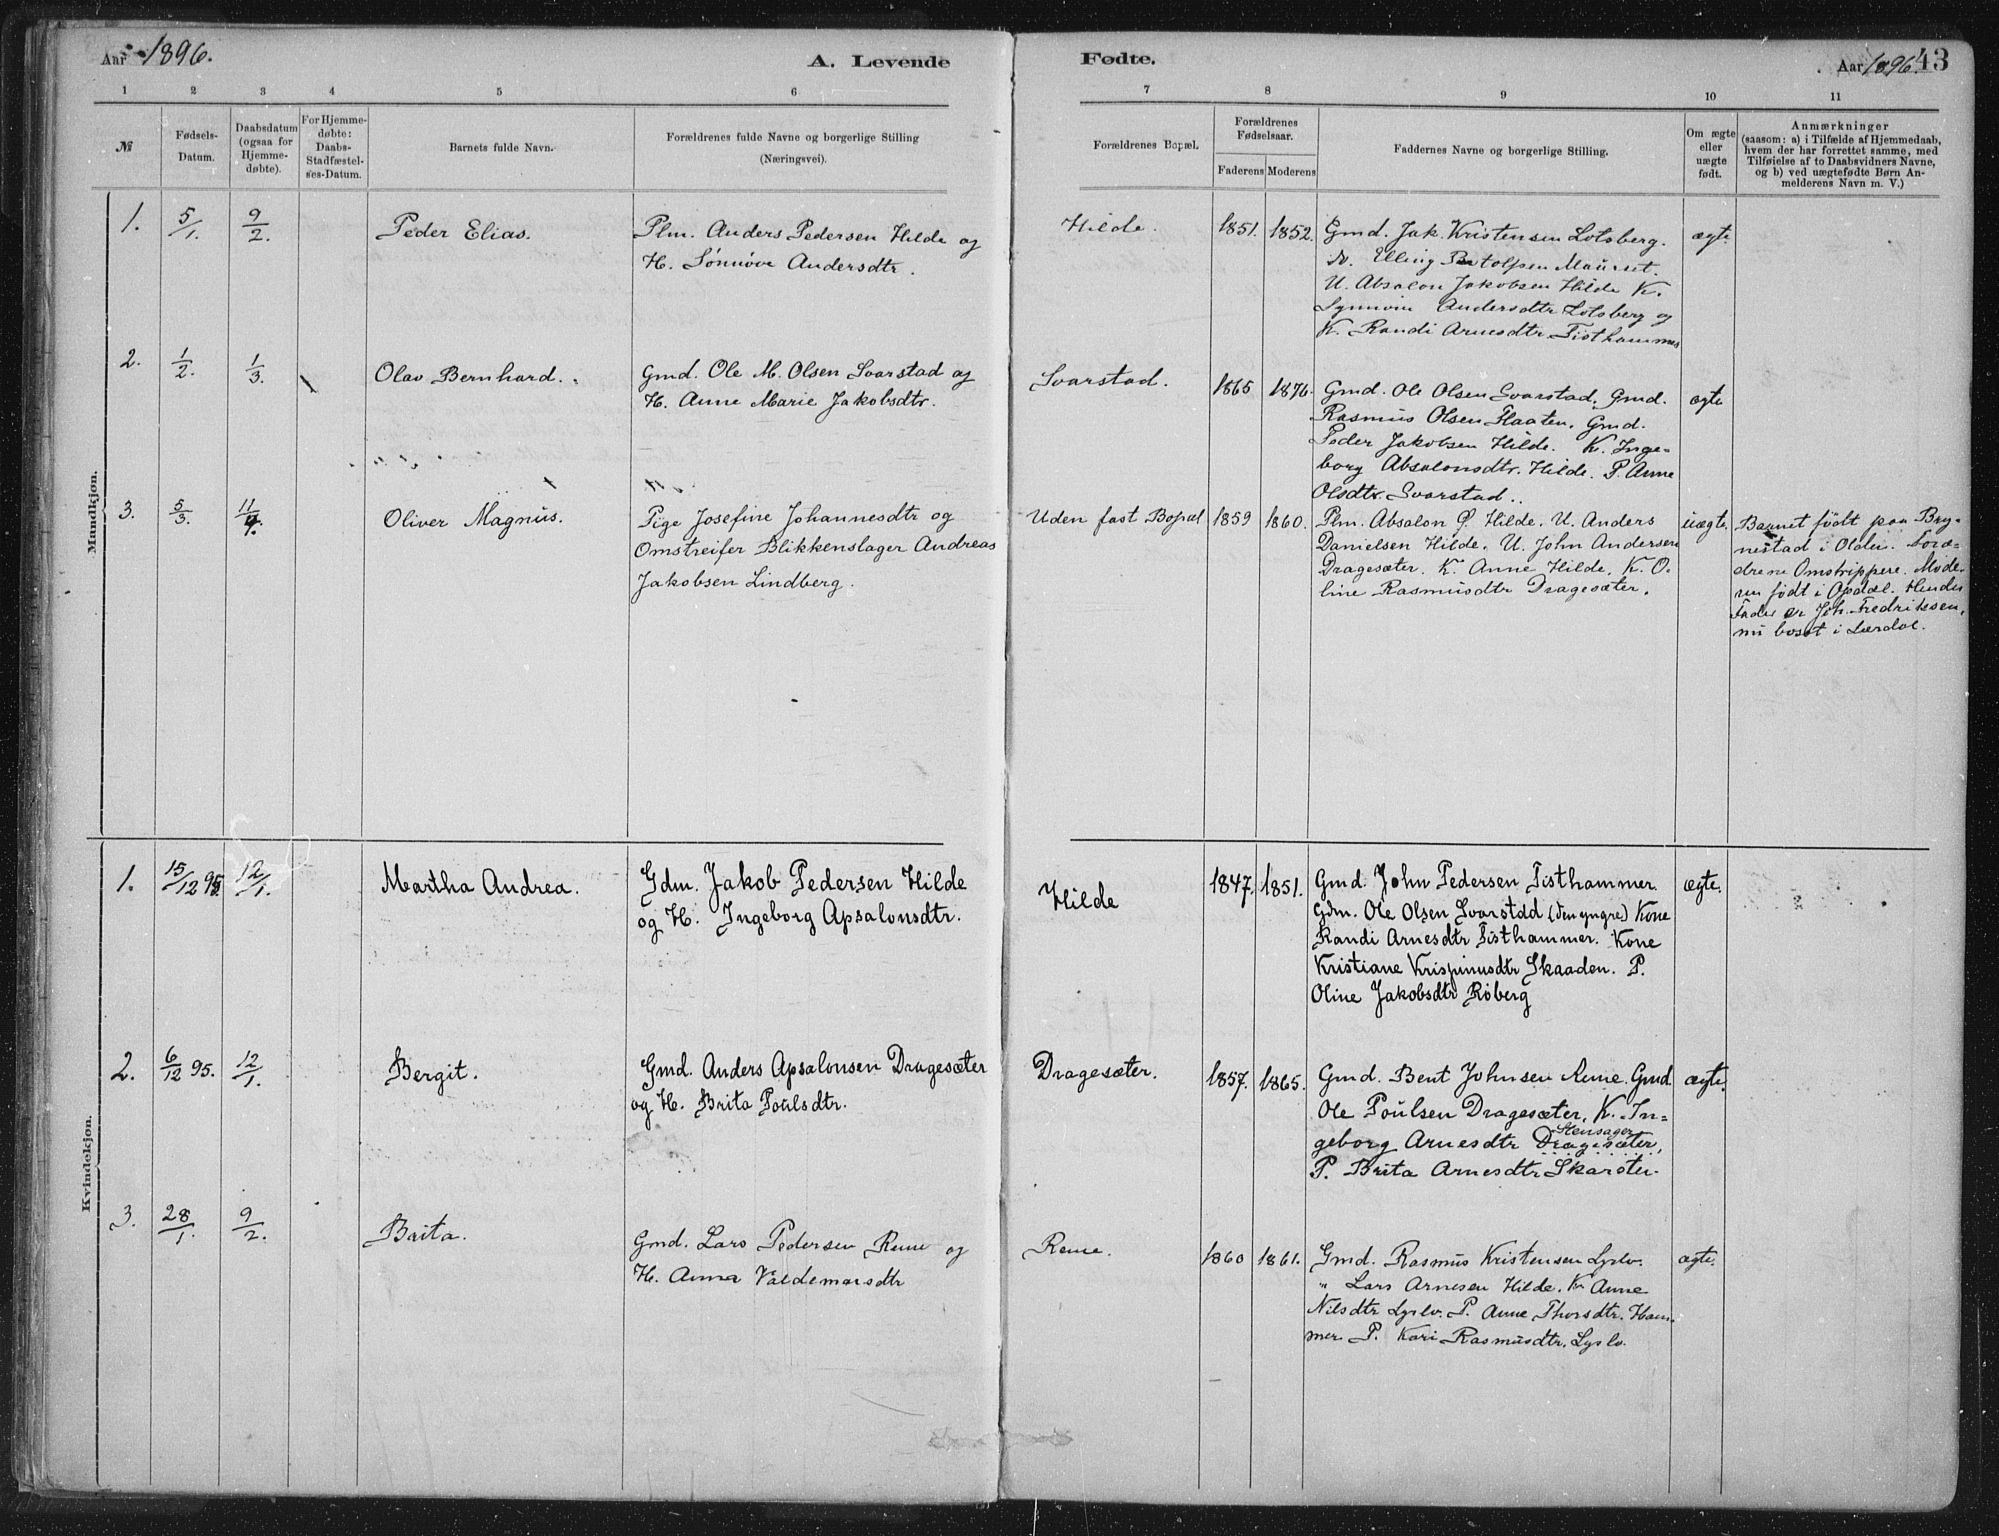 Aar 1896.
A. Levende
Fødte.
Aar 1896.
43
1
2
3
4
5
6
7
8
9
10
11
№
Fødsels-
Datum.
Daabsdatum
(ogsaa for
Hjemme-
døbte).
For Hjemme-
døbte:
Daabs-
Stadfæstel-
ses-Datum.
Barnets fulde Navn.
Forældrenes fulde Navne og borgerlige Stilling
(Næringsvei).
Forældrenes Bopæl.
Forældrenes
Fødselsaar.
Faderens Moderens
Faddernes Navne og borgerlige Stilling.
Om ægte
eller
uægte
født.
Anmærkninger
(saasom: a) i Tilfælde af Hjemmedaab,
hvem der har forrettet samme, med
Tilføielse af to Daabsvidners Navne,
og b) ved uægtefødte Børn An-
melderens Navn m. V.)
Mandkjøn.
1.
5/1.
9/2.
Peder Elias.
Plm. Anders Pedersen Hilde og
H. Sønnøve Andersdtr.
Hilde.
1851.
1852.
Gmd. Jak. Kristensen Lotsberg.
Elling Maurset.
U. Absalon Jakobsen Hilde K.
Andersdtr Lotsberg og
K. Randi Arnesdtr Tisthammer
ægte
2.
1/2.
1/3.
Olav Bernhard.
Gmd. Ole M. Olsen Svarstad og
H. Anne Marie Jakobsdtr.
Svarstad.
1865
1876.
Gmd. Ole Olsen Svarstad, Gmd.
Rasmus Olsen Flaaten. Gmd.
Peder Jakobsen Hilde. K. Inge-
borg Absalonsdtr. Hilde. P. Anne
Olsdtr. Svarstad.
ægte
3.
5/3.
11/4.
Oliver Magnus.
Pige Josefine Johannesdtr og
Omstreifer Blikkenslager Andreas
Jakobsen Lindberg.
Uden fast Bopæl
1859
1860.
Plm. Absalon Ø. Hilde. U. Anders
Danielsen Hilde. U. John Andersen
Dragesæter. K. Anne Hilde. K. O-
line Rasmusdtr Dragesæter.
uægte.
Barnet født paa Bry-
nestad i Olden. Foræ-
drene Omstrippere. Mode-
ren født i Opdal. Hendes
Fader er Joh. Fredriksen,
nu bosat i Lærdal.
Kvindekjøn.
1.
15/12 95.
12/1.
Martha Andrea.
Gdm. Jakob Pedersen Hilde
og H. Ingeborg Apsalonsdtr.
Hilde
1847.
1851.
Gmd. John Pedersen Tisthammer.
Gdm. Ole Olsen Svarstad (den yngre) Kone
Randi Arnesdtr Tisthammer. Kone
Kristiane Krispinusdtr Skaaden. P.
Oline Jakobsdtr Røberg
ægte.
2.
6/12 95.
12/1.
Bergit.
Gmd. Anders Apsalonsen Dragesæter
og H. Brita Poulsdtr.
Dragesæter.
1857.
1865.
Gmd. Bent Johnsen Reme, Gmd
Ole Poulsen Dragesæter, K. In-
Stensager
geborg Arnesdtr Dragesæter,
P. Brita Arnesdtr Skarsten.
ægte.
3.
28/1.
9/2.
Brita.
Gmd. Lars Pedersen Reme og
H. Anna Valdemarsdtr
Reme.
1860
1861.
Gmd. Rasmus Kristensen Lyslo.
" Lars Arnesen Hilde. K. Anne
Nilsdtr Lyslo. P. Anne Thorsdtr. Ham-
mer P. Kari Rasmusdtr. Lyslo.
ægte.